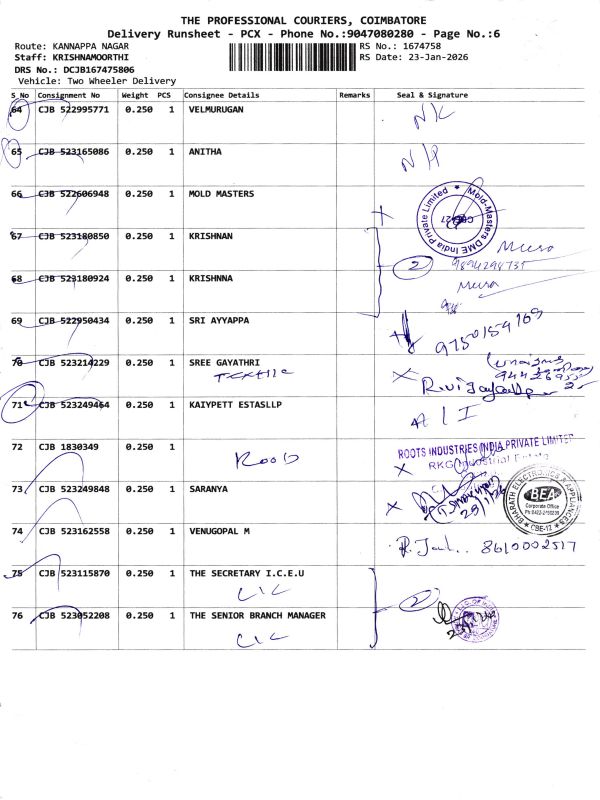 THE PROFESSIONAL COURIERS, COIMBATORE
Delivery Runsheet - PCX - Phone No.:9047080280 - Page No.:6
Route: KANNAPPA NAGAR RS No.: 1674758
Staff: KRISHNAMOORTHI RS Date: 23-Jan-2026
DRS No.: DCJB167475806
Vehicle: Two Wheeler Delivery
S_No Consignment No Weight PCS Consignee Details Remarks Seal & Signature
64 CJB 522995771 0.250 1 VELMURUGAN N/C
65 CJB 523165086 0.250 1 ANITHA N/P
66 CJB 522606948 0.250 1 MOLD MASTERS
Mold-Masters DME India Private Limited
67 CJB 523180850 0.250 1 KRISHNAN
2
9894298735
68 CJB 523180924 0.250 1 KRISHNNA
69 CJB 522950434 0.250 1 SRI AYYAPPA 9750159769
70 CJB 523214229 0.250 1 SREE GAYATHRI
71 CJB 523249464 0.250 1 KAIYPETT ESTASLLP
72 CJB 1830349 0.250 1
ROOTS INDUSTRIES INDIA PRIVATE LIMITED
RKG Industrial Estate
73 CJB 523249848 0.250 1 SARANYA
BHARATH ELECTRONICS & APPLIANCES
BEA
Corporate Office
CBE-12
74 CJB 523162558 0.250 1 VENUGOPAL M 8610002517
75 CJB 523115870 0.250 1 THE SECRETARY I.C.E.U
LIC
2
76 CJB 523052208 0.250 1 THE SENIOR BRANCH MANAGER
LIC